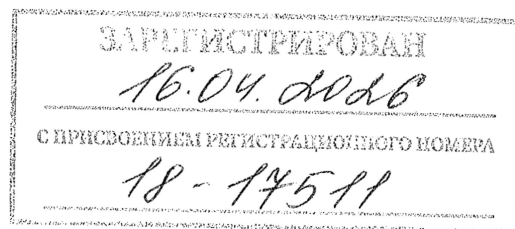 ЗАРЕГИСТРИРОВАН
16.04.2026
С ПРИСВОЕНИЕМ РЕГИСТРАЦИОННОГО НОМЕРА
18-17511